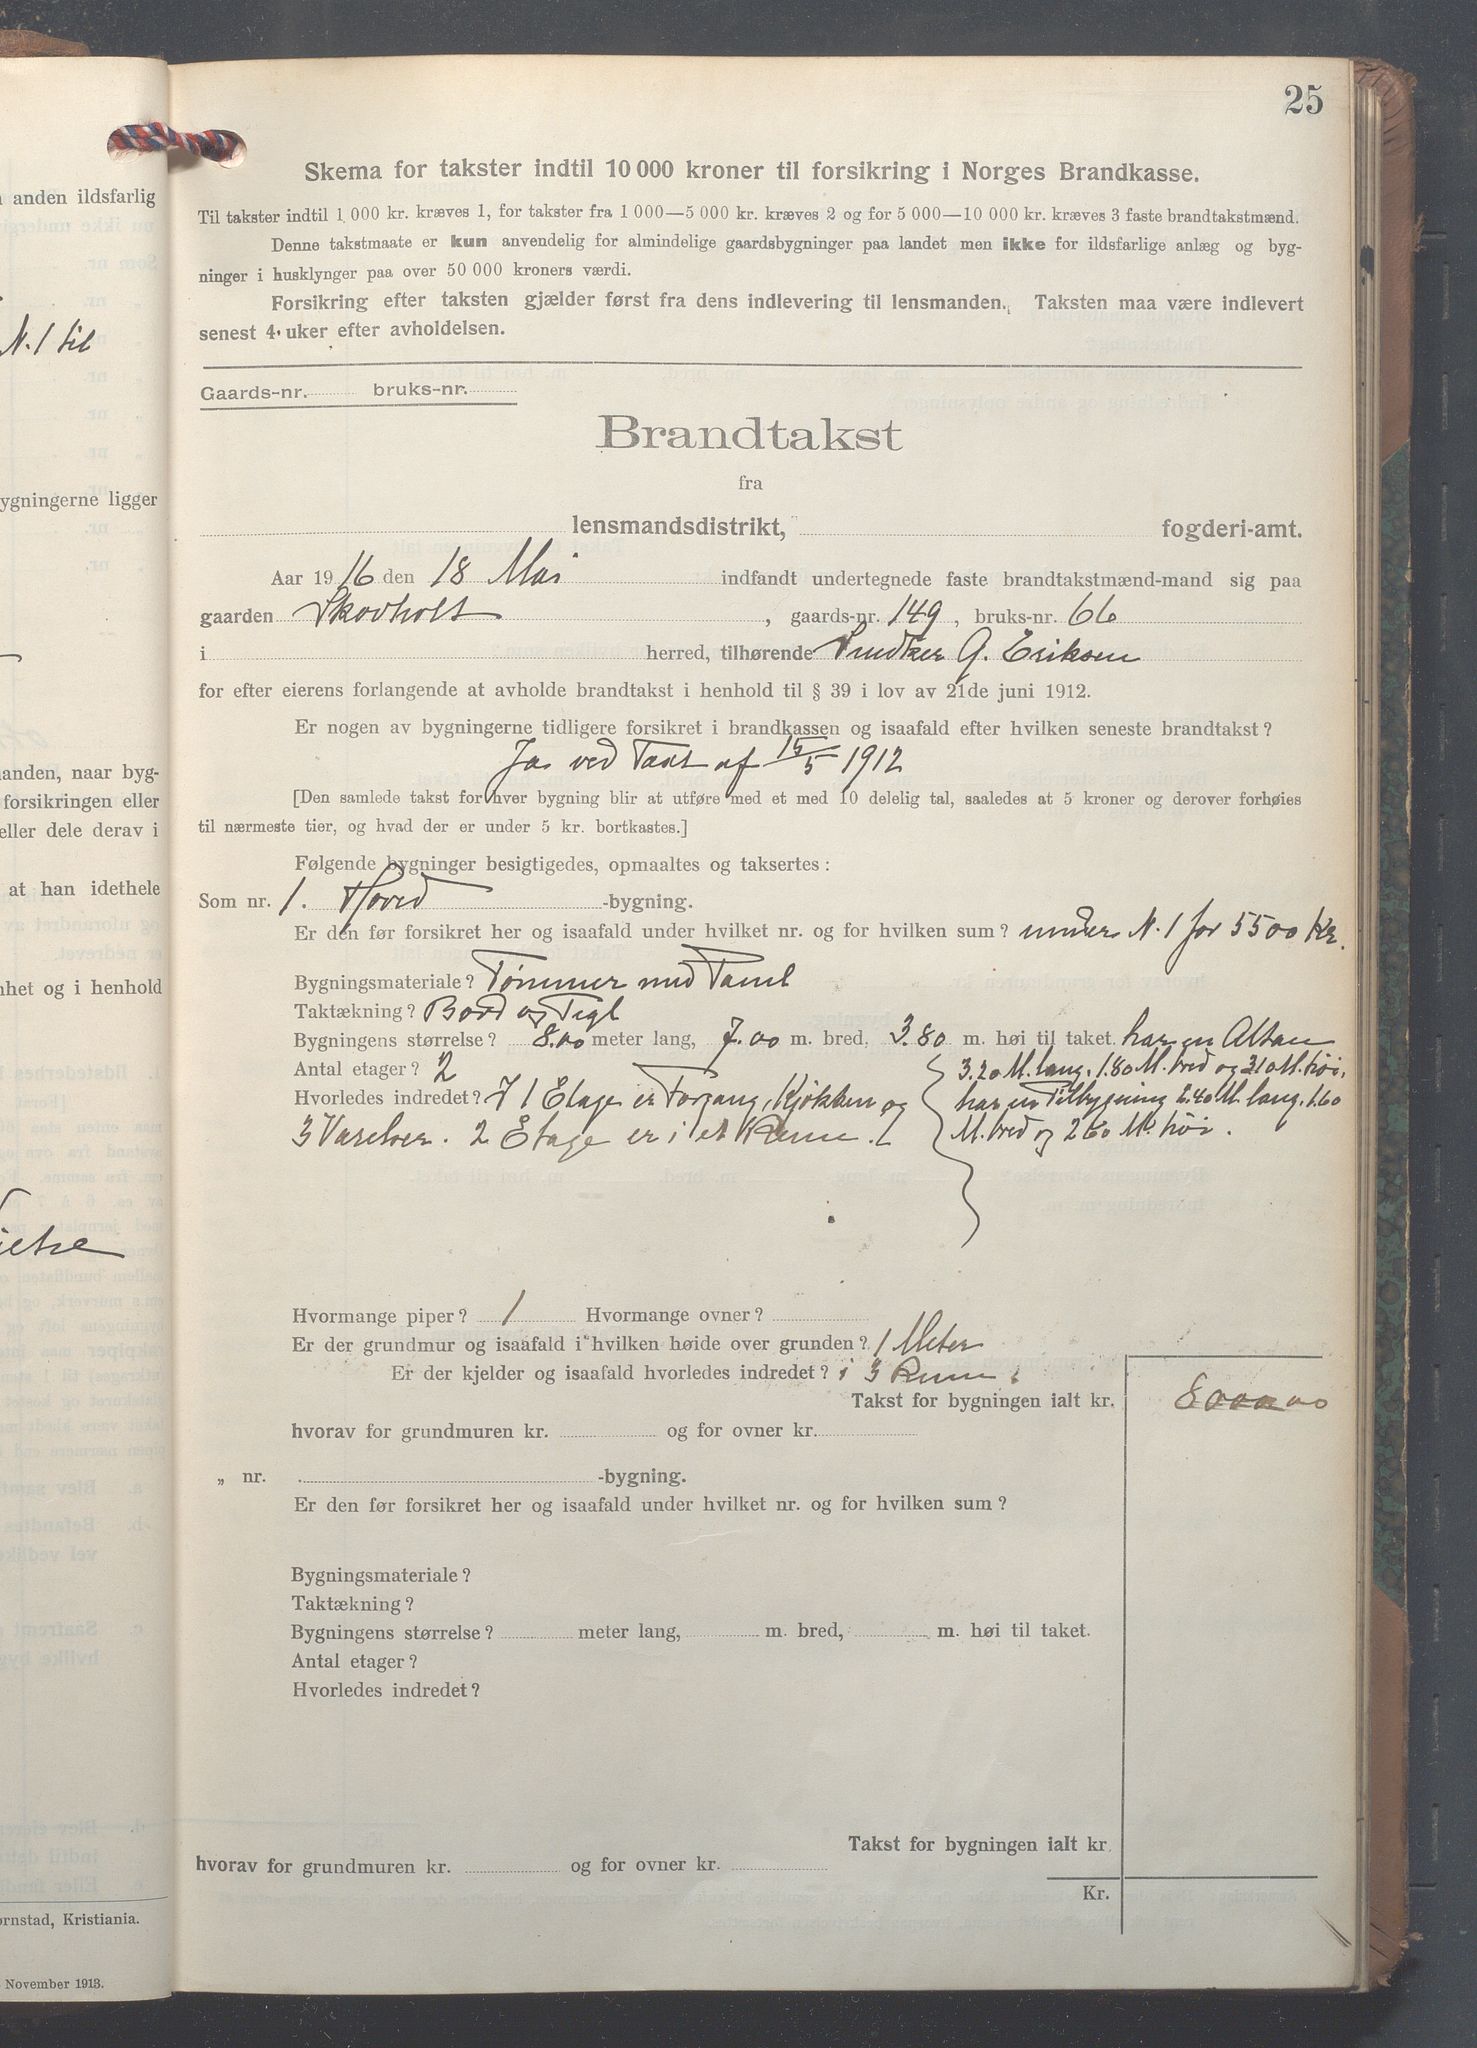 25
Skema for takster indtil 10 000 kroner til forsikring i Norges Brandkasse.
Til takster indtil 1 000 kr. kræves 1, for takster fra 1 000—5 000 kr. kræves 2 og for 5 000—10 000 kr. kræves 3 faste brandtakstmænd.
Denne takstmaate er kun anvendelig for almindelige gaardsbygninger paa landet men ikke for ildsfarlige anlæg og byg-
ninger i husklynger paa over 50 000 kroners værdi.
Forsikring efter taksten gjælder først fra dens indlevering til lensmanden. Taksten maa være indlevert
senest 4 uker efter avholdelsen.
Gaards-nr. bruks-nr.
Brandtakst
fra
lensmandsdistrikt, fogderi-amt.
Aar 1916 den 18 Mai indfandt undertegnede faste brandtakstmænd-mand sig paa
gaarden Skovholt, gaards-nr. 149, bruks-nr. 66
i herred, tilhørende G. Eriksen
for efter eierens forlangende at avholde brandtakst i henhold til § 39 i lov av 21de juni 1912.
Er nogen av bygningerne tidligere forsikret i brandkassen og isaafald efter hvilken seneste brandtakst?
Ja ved Taxt af 15/5 1912
[Den samlede takst for hver bygning blir at utføre med et med 10 delelig tal, saaledes at 5 kroner og derover forhøies
til nærmeste tier, og hvad der er under 5 kr. bortkastes.]
Følgende bygninger besigtigedes, opmaaltes og taksertes:
Som nr. 1. Hoved -bygning.
Er den før forsikret her og isaafald under hvilket nr. og for hvilken sum? under N. 1 for 5500 Kr.
Bygningsmateriale? Tømmer med Panel
Taktækning? Bord og Tegl
Bygningens størrelse? 8.00 meter lang, 7.00 m. bred, 3.80 m. høi til taket. har en Altan
Antal etager? 2 3.20 M. lang, 1.80 M. bred og 3.10 M. høi,
Hvorledes indredet? I 1 Etage er Forgang, Kjøkken og har en Tilbygning 2.40 M. lang, 1.60
3 Værelser. 2 Etage er i et Rum. M. bred og 2.60 M. høi.
Hvormange piper? 1 Hvormange ovner?
Er der grundmur og isaafald i hvilken høide over grunden? 1 Meter
Er der kjelder og isaafald hvorledes indredet? i 3 Rum.
Takst for bygningen ialt kr. 8000 00
hvorav for grundmuren kr. og for ovner kr.
„ nr. -bygning.
Er den før forsikret her og isaafald under hvilket nr. og for hvilken sum?
Bygningsmateriale?
Taktækning?
Bygningens størrelse? meter lang, m. bred, m. høi til taket.
Antal etager?
Hvorledes indredet?
Takst for bygningen ialt kr.
hvorav for grundmuren kr. og for ovner kr.
Kr.
anden ildsfarlig
N. 1 til
ygningerne ligger
anden, naar byg-
forsikringen eller
eller dele derav i
at han idethele
het og i henhold
ørnstad, Kristiania.
November 1913.